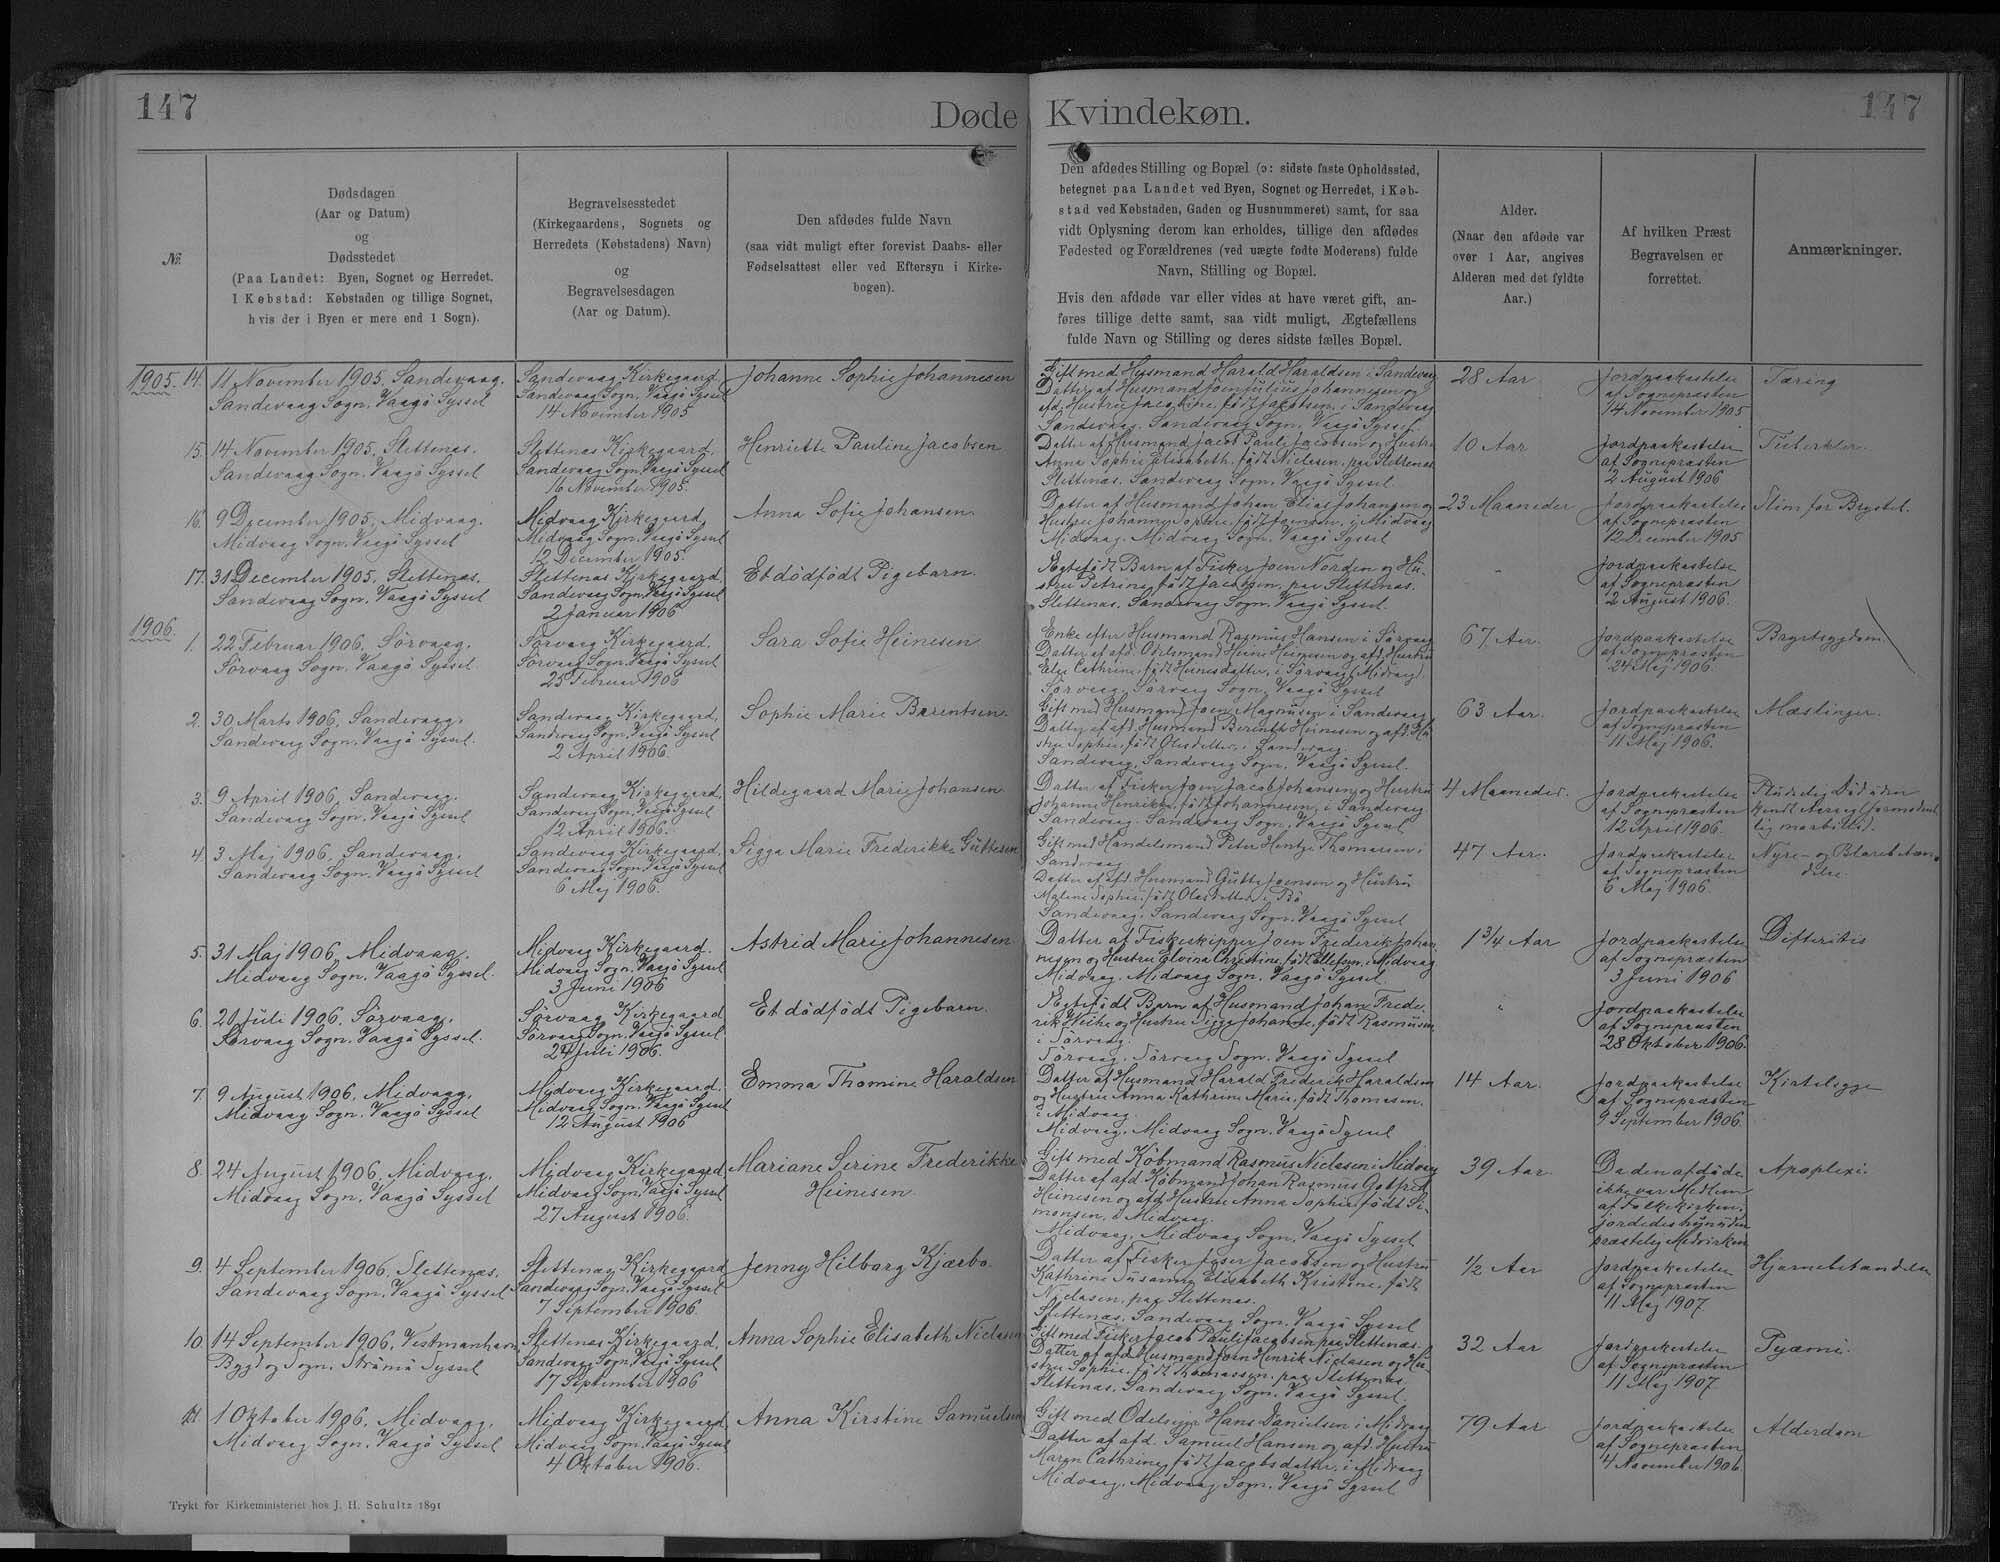 147
Døde Kvindekøn.
147
№.
Dødsdagen
(Aar og Datum)
og
Dødsstedet
(Paa Landet: Byen, Sognet og Herredet.
I Købstad: Købstaden og tillige Sognet,
hvis der i Byen er mere end 1 Sogn).
Begravelsesstedet
(Kirkegaardens, Sognets og
Herredets (Købstadens) Navn)
og
Begravelsesdagen
(Aar og Datum).
Den afdødes fulde Navn
(saa vidt muligt efter forevist Daabs- eller
Fødselsattest eller ved Eftersyn i Kirke-
bogen).
Den afdødes Stilling og Bopæl (ɔ: sidste faste Opholdssted,
betegnet paa Landet ved Byen, Sognet og Herredet, i Køb-
stad ved Købstaden, Gaden og Husnummeret) samt, for saa
vidt Oplysning derom kan erholdes, tillige den afdødes
Fødested og Forældrenes (ved uægte fødte Moderens) fulde
Navn, Stilling og Bopæl.
Hvis den afdøde var eller vides at have været gift, an-
føres tillige dette samt, saa vidt muligt, Ægtefællens
fulde Navn og Stilling og deres sidste fælles Bopæl.
Alder.
(Naar den afdøde var
over 1 Aar, angives
Alderen med det fyldte
Aar.)
Af hvilken Præst
Begravelsen er
forrettet.
Anmærkninger.
1905. 14. 11 November 1905. Sandevaag.
Sandevaag Sogn, Vaagö Syssel
Sandevaag Kirkegaard,
Sandevaag Sogn, Vaagö Syssel
14 November 1905
Johanne Sophie Johannesen
Gift med Husmand Harald Haraldsen i Sandevaag
Datter af Husmand Joen Julius Johannesen og
afd. Hustru Jacobine, født Jacobsen, i Sandevaag
Sandevaag. Sandevaag Sogn, Vaagö Syssel
28 Aar
Jordpaakastelse
af Sognepræsten
14 November 1905
Tæring
15. 14 November 1905. Slettenæs.
Sandevaag Sogn, Vaagö Syssel
Slettenæs Kirkegaard.
Sandevaag Sogn, Vaagö Syssel
16 November 1905.
Henriette Pauline Jacobsen
Datter af Husmand Jacob Pauli Jacobsen og Hustru
Anna Sophie Elisabeth, født Niclasen, paa Slettenæs
Slettenæs. Sandevaag Sogn, Vaagö Syssel
10 Aar
Jordpaakastelse
af Sognepræsten
2 August 1906
Tuberkler.
16. 9 December 1905. Midvaag.
Midvaag Sogn, Vaagö Syssel
Midvaag Kirkegaard,
Midvaag Sogn, Vaagö Syssel
12 December 1905.
Anna Sofie Johansen
Datter af Husmand Johan Elias Johansen og
Hustru Johanne Sophie, født Joensen, i Midvaag
Midvaag. Midvaag Sogn, Vaagö Syssel
23 Maaneder
Jordpaakastelse
af Sognepræsten
12 December 1905
Slim for Brystet.
17. 31 December 1905. Slettenæs.
Sandevaag Sogn, Vaagö Syssel
Slettenæs Kirkegaard.
Sandevaag Sogn, Vaagö Syssel
2 Januar 1906
Et dödfödt Pigebarn.
Ægtefödt Barn af Fisker Joen Norden og Hu-
stru Petrine, født Jacobsen, paa Slettenæs.
Slettenæs. Sandevaag Sogn, Vaagö Syssel.
Jordpaakastelse
af Sognepræsten
2 August 1906.
1906. 1. 22 Februar 1906. Sörvaag.
Sörvaag Sogn, Vaagö Syssel
Sörvaag Kirkegaard,
Sörvaag Sogn, Vaagö Syssel
25 Februar 1906
Sara Sofie Heinesen
Enke efter Husmand Rasmus Hansen i Sörvaag
Datter af afd. Odelsmand Heine Heinesen og afd. Hustru
Else Cathrine, født Heinesdatter, i Sörvaag (Midvaag).
Sörvaag. Sörvaag Sogn, Vaagö Syssel
67 Aar.
Jordpaakastelse
af Sognepræsten
24 Maj 1906
Brystsygdom
2. 30 Marts 1906. Sandevaag.
Sandevaag Sogn, Vaagö Syssel.
Sandevaag Kirkegaard,
Sandevaag Sogn, Vaagö Syssel
2 April 1906.
Sophie Marie Berentsen.
Gift med Husmand Joen Magnusen i Sandevaag
Datter af afd. Husmand Berenth Heinesen og afd. Hu-
stru Sophie, født Olesdatter, i Sandevaag.
Sandevaag. Sandevaag Sogn, Vaagö Syssel.
63 Aar.
Jordpaakastelse
af Sognepræsten
11 Maj 1906.
Mæslinger.
3. 9 April 1906. Sandevaag.
Sandevaag Sogn, Vaagö Syssel
Sandevaag Kirkegaard,
Sandevaag Sogn, Vaagö Syssel
12 April 1906.
Hildegaard Marie Johansen
Datter af Fisker Joen Jacob Johansen og Hustru
Johanne Henrikke, født Johannesen, i Sandevaag
Sandevaag. Sandevaag Sogn, Vaagö Syssel
4 Maaneder.
Jordpaakastelse
af Sognepræsten
12 April 1906.
Pludselig Död uden
kendt Aarsag (formodent
lig morbilli).
4. 3 Maj 1906. Sandevaag.
Sandevaag Sogn, Vaagö Syssel
Sandevaag Kirkegaard,
Sandevaag Sogn, Vaagö Syssel
6 Maj 1906.
Sigga Marie Frederikke Guttesen
Gift med Handelsmand Peter Hentze Thomassen i
Sandevaag.
Datter af afd. Husmand Gutte Joensen og Hustru
Malene Sophie, født Olesdatter, i Bö
Sandevaag. Sandevaag Sogn, Vaagö Syssel
47 Aar.
Jordpaakastelse
af Sognepræsten
6 Maj 1906.
Nyre- og Blærebetæn-
delse
5. 31 Maj 1906. Midvaag.
Midvaag Sogn, Vaagö Syssel.
Midvaag Kirkegaard.
Midvaag Sogn, Vaagö Syssel
3 Juni 1906
Astrid Marie Johannesen
Datter af Fiskeskipper Joen Frederik Johan-
nesen og Hustru Elvina Christine, født Ellefsen, i Midvaag
Midvaag. Midvaag Sogn, Vaagö Syssel.
1 3/4 Aar
Jordpaakastelse
af Sognepræsten
3 Juni 1906
Difteritis
6. 21 Juli 1906. Sörvaag.
Sörvaag Sogn, Vaagö Syssel.
Sörvaag Kirkegaard
Sörvaag Sogn, Vaagö Syssel
24 Juli 1906.
Et dödfödt Pigebarn.
Ægtefödt Barn af Husmand Johan Frede-
rik Weihe og Hustru Sigga Johanne, født Rasmussen,
i Sörvaag.
Sörvaag. Sörvaag Sogn. Vaagö Syssel
Jordpaakastelse
af Sognepræsten
28 Oktober 1906.
7. 9 August 1906. Midvaag.
Midvaag Sogn. Vaagö Syssel
Midvaag Kirkegaard.
Midvaag Sogn. Vaagö Syssel
12 August 1906
Emma Thomine Haraldsen
Datter af Husmand Harald Frederik Haraldsen
og Hustru Anna Kathrine Marie, født Thomasen.
i Midvaag.
Midvaag. Midvaag Sogn. Vaagö Syssel
14 Aar.
Jordpaakastelse
af Sognepræsten
9 September 1906.
Kirtelsyge
8. 24 August 1906. Midvaag.
Midvaag Sogn, Vaagö Syssel
Midvaag Kirkegaard,
Midvaag Sogn, Vaagö Syssel
27 August 1906.
Mariane Serine Frederikke
Heinesen.
Gift med Köbmand Rasmus Niclasen i Midvaag
Datter af afd. Köbmand Johan Rasmus Gotfred
Heinesen og afd. Hustru Anna Sophie, født Si-
monsen, i Midvaag.
Midvaag. Midvaag Sogn. Vaagö Syssel
39 Aar.
Da den afdöde
ikke var Medlem
af Folkekirken,
jordedes hun uden
præstelig Medvirken
Apoplexi.
9. 4 September 1906. Slettenæs.
Sandevaag Sogn, Vaagö Syssel
Slettenæs Kirkegaard
Sandevaag Sogn, Vaagö Syssel
7 September 1906.
Jenny Hilborg Kjærbo.
Datter af Fisker Joser Jacobsen og Hustru
Kathrine Susanne Elisabeth Kristine, født
Niclasen, paa Slettenæs.
Slettenæs. Sandevaag Sogn. Vaagö Syssel
1/2 Aar
Jordpaakastelse
af Sognepræsten
11 Maj 1907
Hjernebetændelse
10. 14 September 1906. Vestmanhavn
Bygd og Sogn, Strömö Syssel
Slettenæs Kirkegaard,
Sandevaag Sogn, Vaagö Syssel
17 September 1906
Anna Sophie Elisabeth Niclasen
Gift med Fisker Jacob Pauli Jacobsen paa Slettenæs.
Datter af afd. Husmand Joen Henrik Niclasen og Hu-
stru Sophie, født Thomassen, paa Slettenæs
Slettenæs. Sandevaag Sogn. Vaagö Syssel.
32 Aar
Jordpaakastelse
af Sognepræsten
11 Maj 1907
Pyæmi.
11. 1 Oktober 1906. Midvaag.
Midvaag Sogn. Vaagö Syssel
Midvaag Kirkegaard
Midvaag Sogn, Vaagö Syssel
4 Oktober 1906.
Anna Kirstine Samuelsen
Gift med Odelsejer Hans Danielsen i Midvaag
Datter af afd. Samuel Hansen og afd. Hustru
Maren Cathrine, født Jacobsdatter, i Midvaag
Midvaag. Midvaag Sogn. Vaagö Syssel
79 Aar
Jordpaakastelse
af Sognepræsten
4 November 1906.
Alderdom
Trykt for Kirkeministeriet hos J. H. Schultz 1891